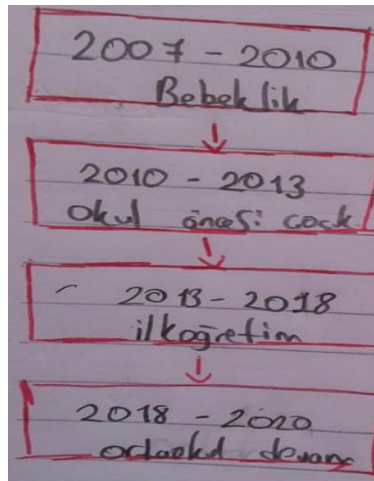 2007 - 2010
Bebeklik
2010 - 2013
Okul öncesi cock
2013 - 2018
ilköğretim
2018 - 2020
ortaokul devamı